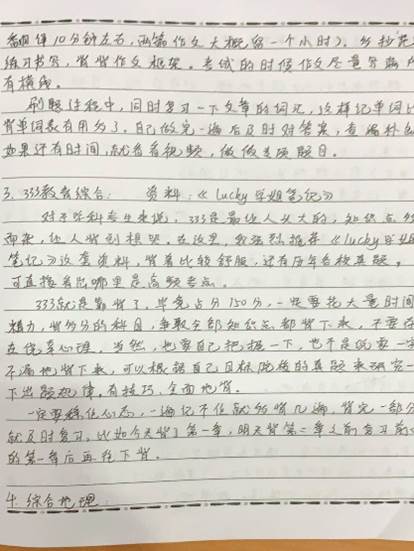 翻译10分钟左右，两篇作文大概留一个小时)，多抄范
练习书写，背背作文框架。考试的时候作文尽量分两
有横线。
刷题过程中，同时复习一下文章的词汇，这样记单词比
背单词表有用多了。自己做完一遍后及时对答案，查漏补
如果还有时间，就看看视频，做做专项题目。
3. 333教育综合: 资料:《Lucky学姐笔记》
对于跨科考生来说，333是最让人头大的，知识点多
而杂，让人背到想哭。在这里，我强烈推荐《lucky学姐
笔记》这套资料，背着比较舒服，还有历年各校真题。
可直接看出哪里是高频考点。
333就是靠背了，毕竟占分150分，一定要花大量时间
精力，背多分的科目，争取全部知识点都背下来，不要存
在侥幸心理。当然，也要自己把握一下，也不是说要一字
不漏地背下来，可以根据自己目标院校的真题来研究一
下出题规律，有技巧、全面地背。
一定要稳住心态，一遍记不住就多背几遍，背完一部分
就及时复习，比如今天背了第一章，明天背第二章之前复习前
的第一章后再往下背。
4. 综合地理: